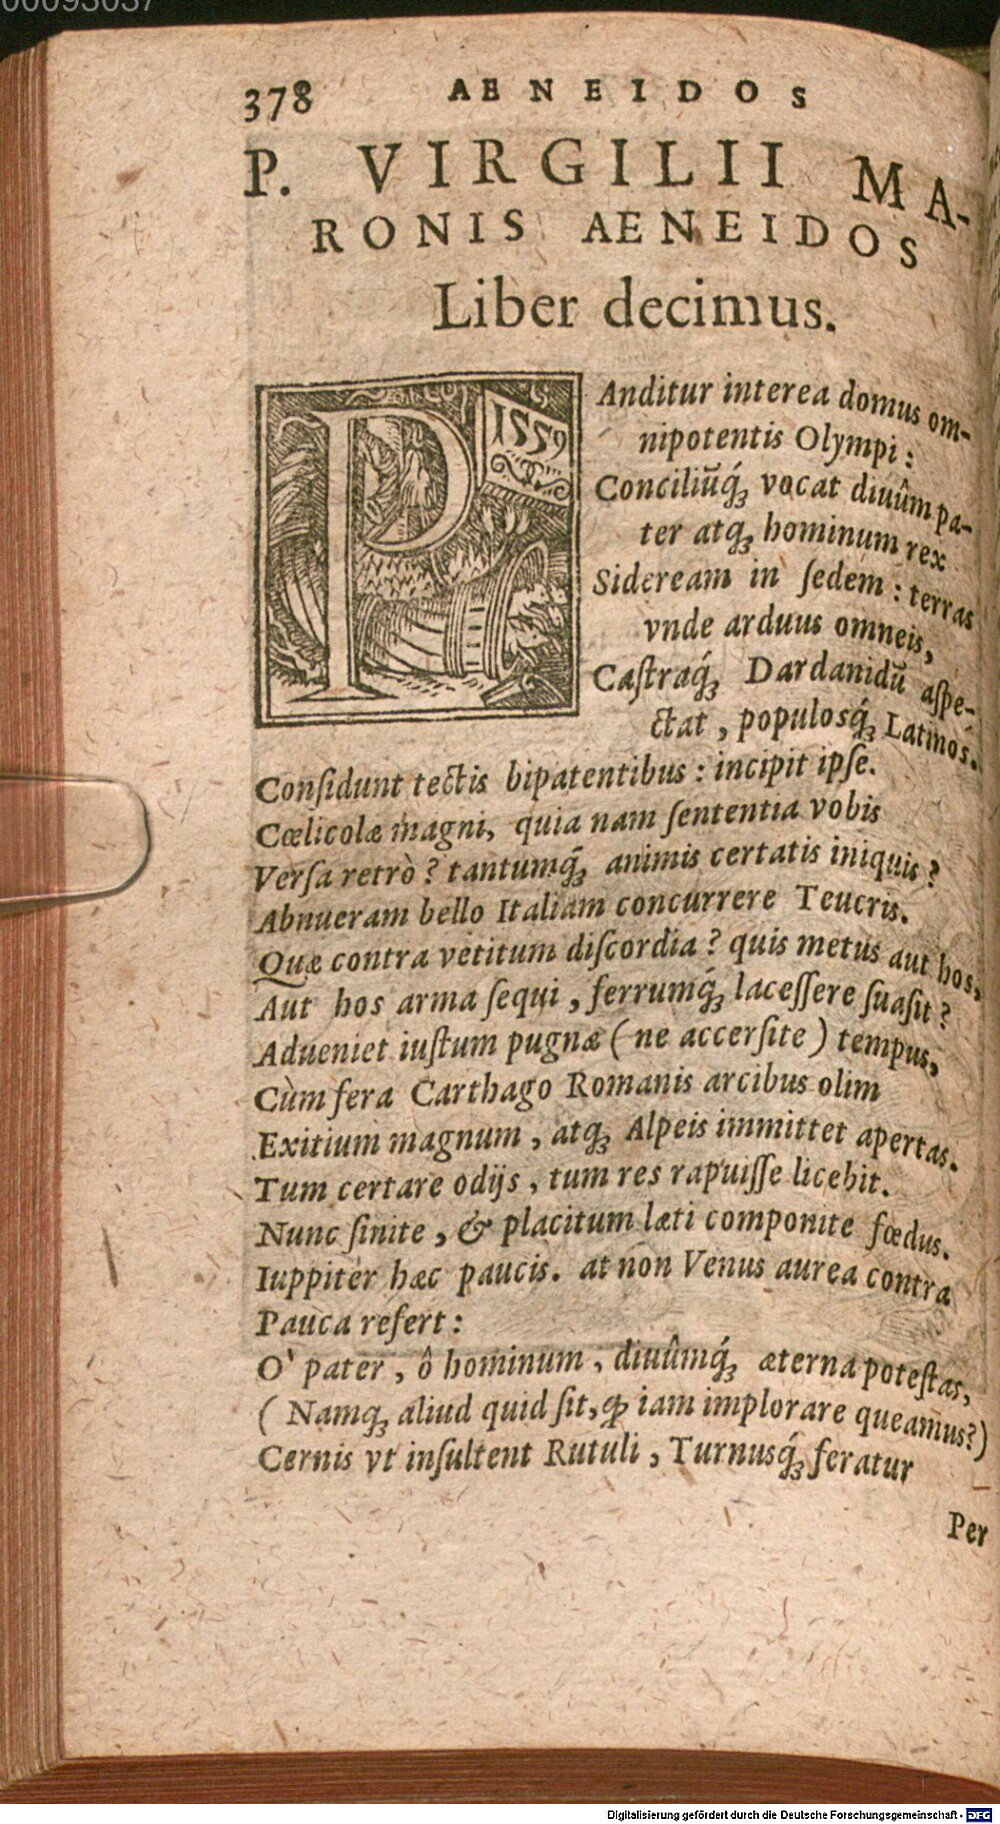 00093037
378 AENEIDOS
P. VIRGILII MA-
RONIS AENEIDOS
Liber decimus.
1559
PAnditur interea domus om-
nipotentis Olympi:
Conciliū́q́ꝫ vocat diuûm pa-
ter atqꝫ hominum rex
Sideream in ſedem: terras
vnde arduus omneis,
Caſtraq́ꝫ Dardanidū aſpe-
ctat, populosq́ꝫ Latinos.
Conſidunt tectis bipatentibus: incipit ipſe.
Cœlicolæ magni, quia nam ſententia vobis
Verſa retrò? tantumq́ꝫ animis certatis iniquis?
Abnueram bello Italiam concurrere Teucris.
Quæ contra vetitum diſcordia? quis metus aut hos,
Aut hos arma ſequi, ferrumq́ꝫ laceſſere ſuaſit?
Adueniet iuſtum pugnæ (ne accerſite) tempus,
Cùm fera Carthago Romanis arcibus olim
Exitium magnum, atqꝫ Alpeis immittet apertas.
Tum certare odijs, tum res rapuiſſe licebit.
Nunc ſinite, & placitum læti componite fœdus.
Iuppiter hæc paucis. at non Venus aurea contra
Pauca refert:
O' pater, ô hominum, diuûmq́ꝫ æterna poteſtas,
(Namqꝫ aliud quid ſit, ꝙ iam implorare queamus?)
Cernis vt inſultent Rutuli, Turnusq́ꝫ feratur
Per
Digitalisierung gefördert durch die Deutsche Forschungsgemeinschaft - DFG